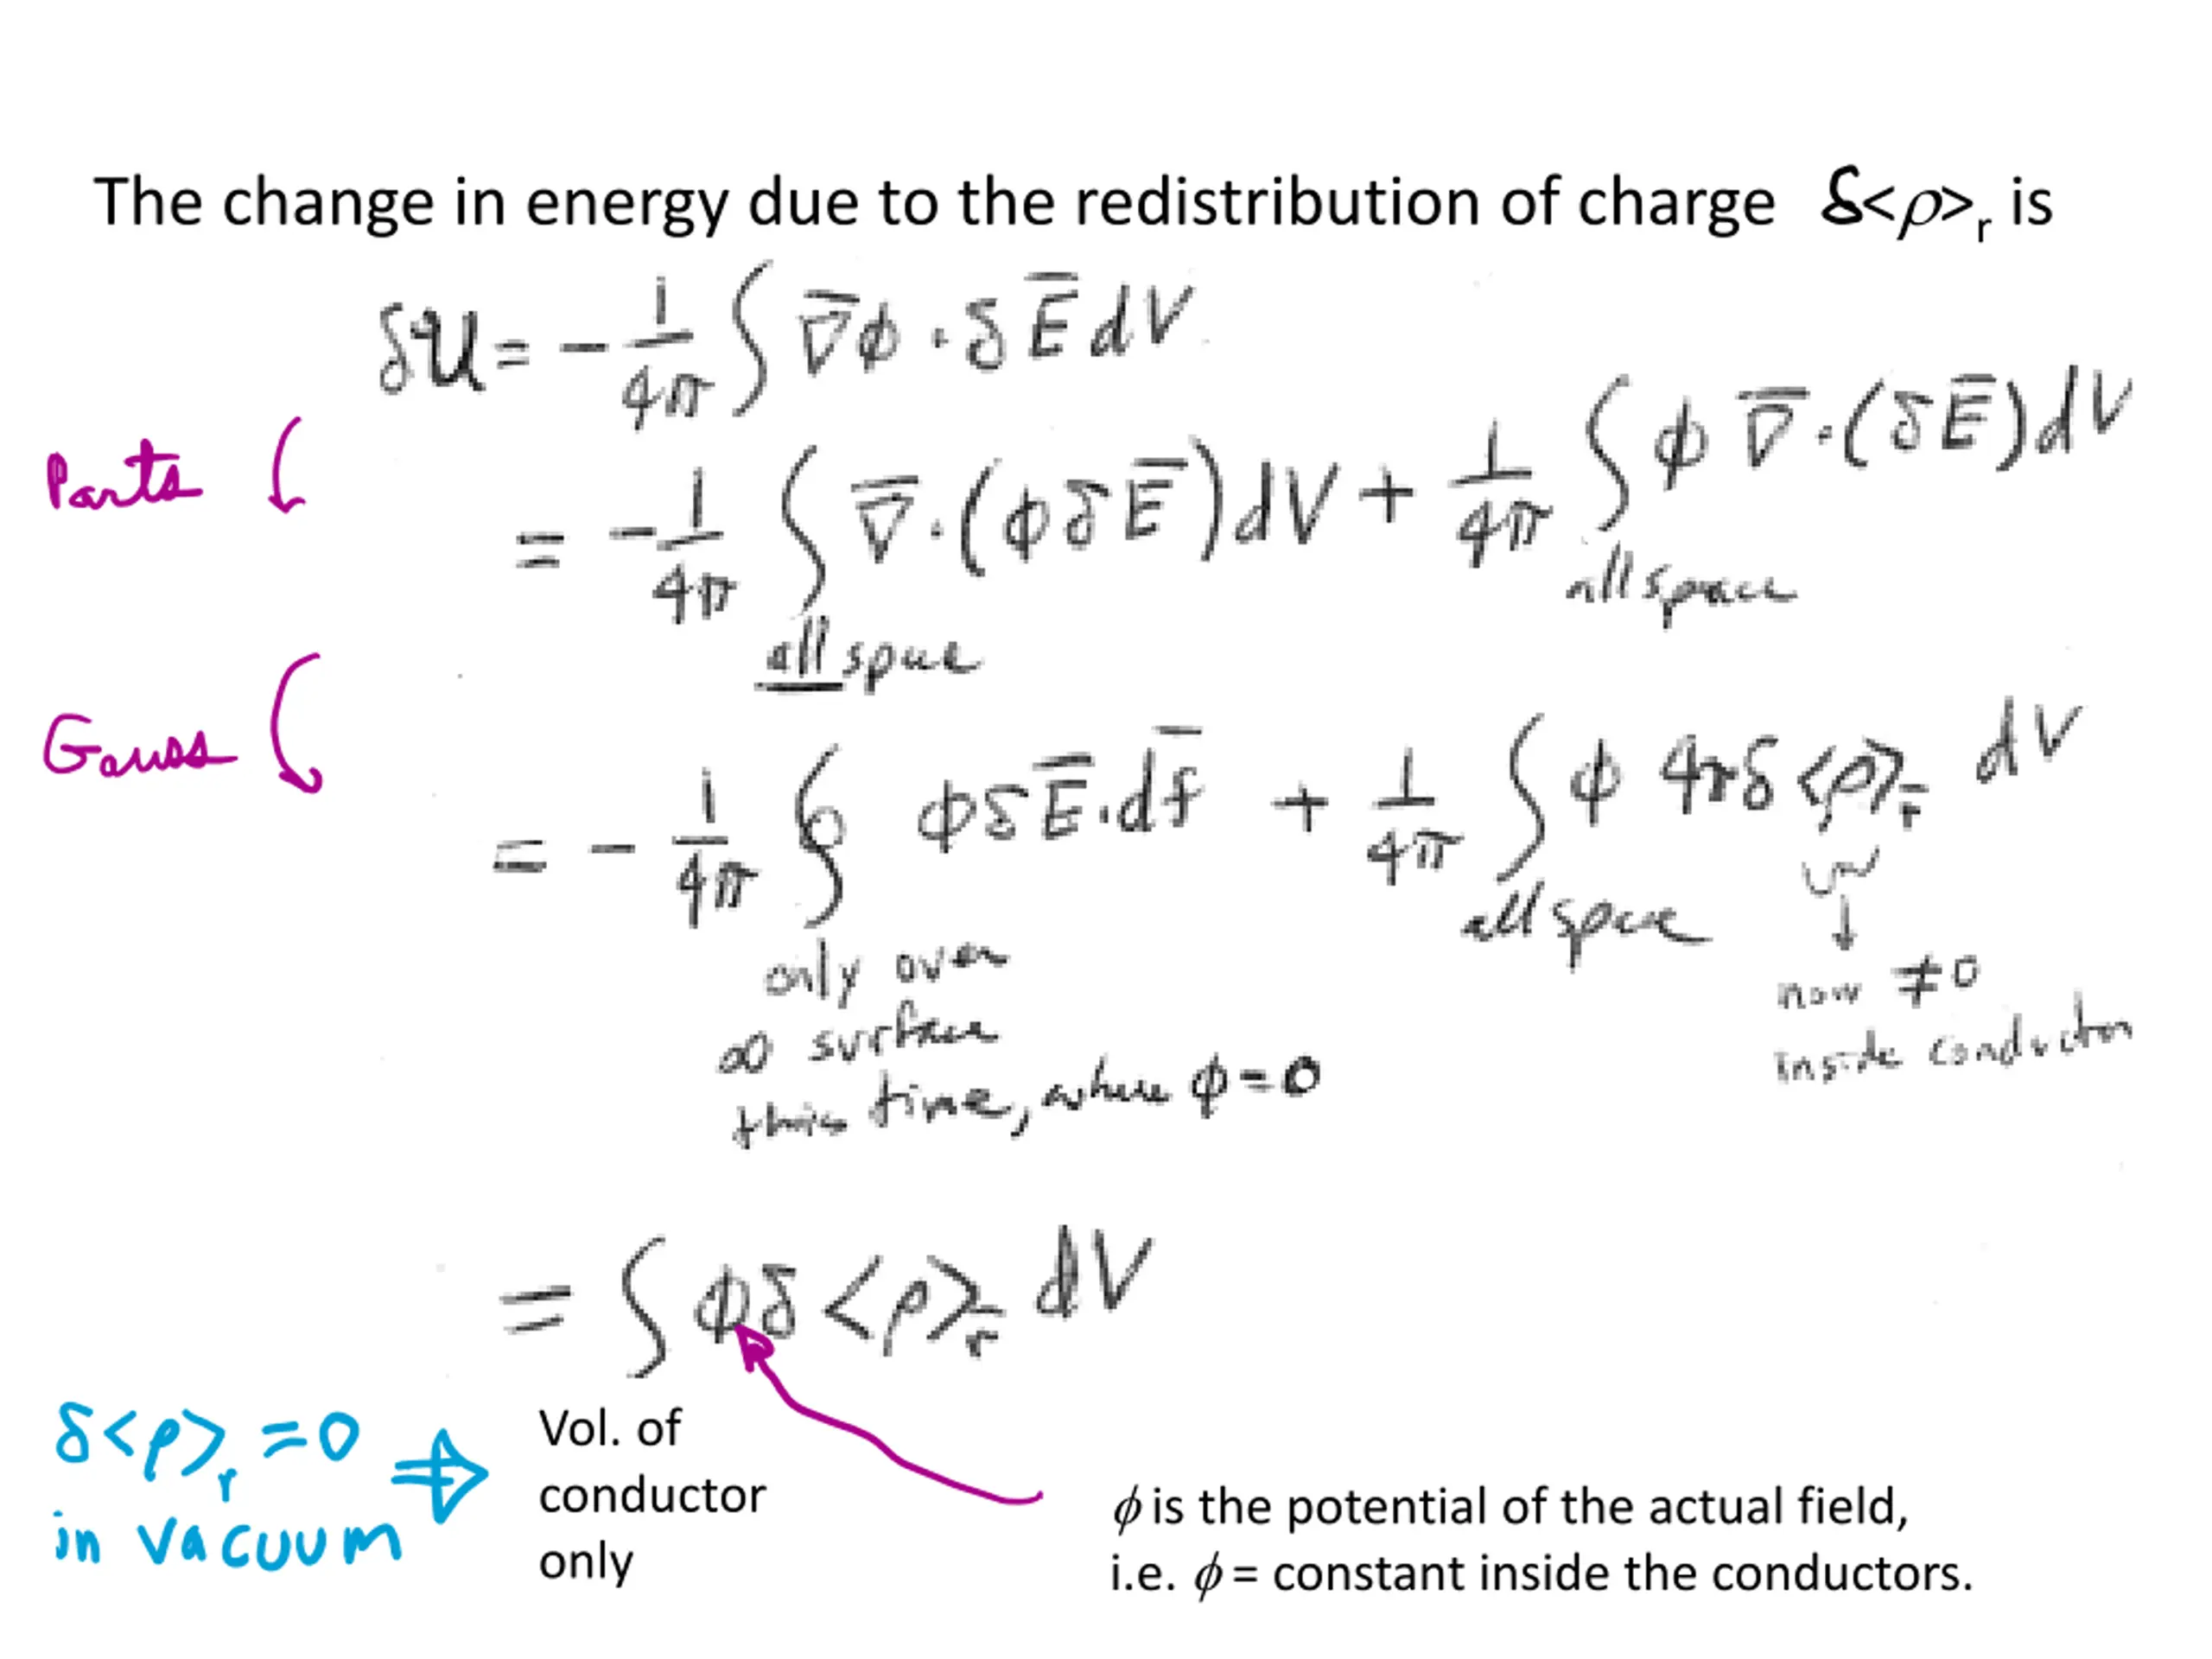 The change in energy due to the redistribution of charge δ<ρ>r is
δU = - 1/4π ∫ ∇̅φ · δE̅ dV
Parts
= - 1/4π ∫ ∇̅·(φδE̅)dV + 1/4π ∫ φ ∇̅·(δE̅)dV
all space all space
Gauss
= - 1/4π ∮ φδE̅·df̅ + 1/4π ∫ φ 4πδ<ρ>r̅ dV
only over all space ↓
∞ surface now ≠0
this time, where φ=0 inside conductor
= ∫ φδ<ρ>r̅ dV
δ<ρ>r =0 ⇒ Vol. of
in vacuum conductor
only
φ is the potential of the actual field,
i.e. φ = constant inside the conductors.